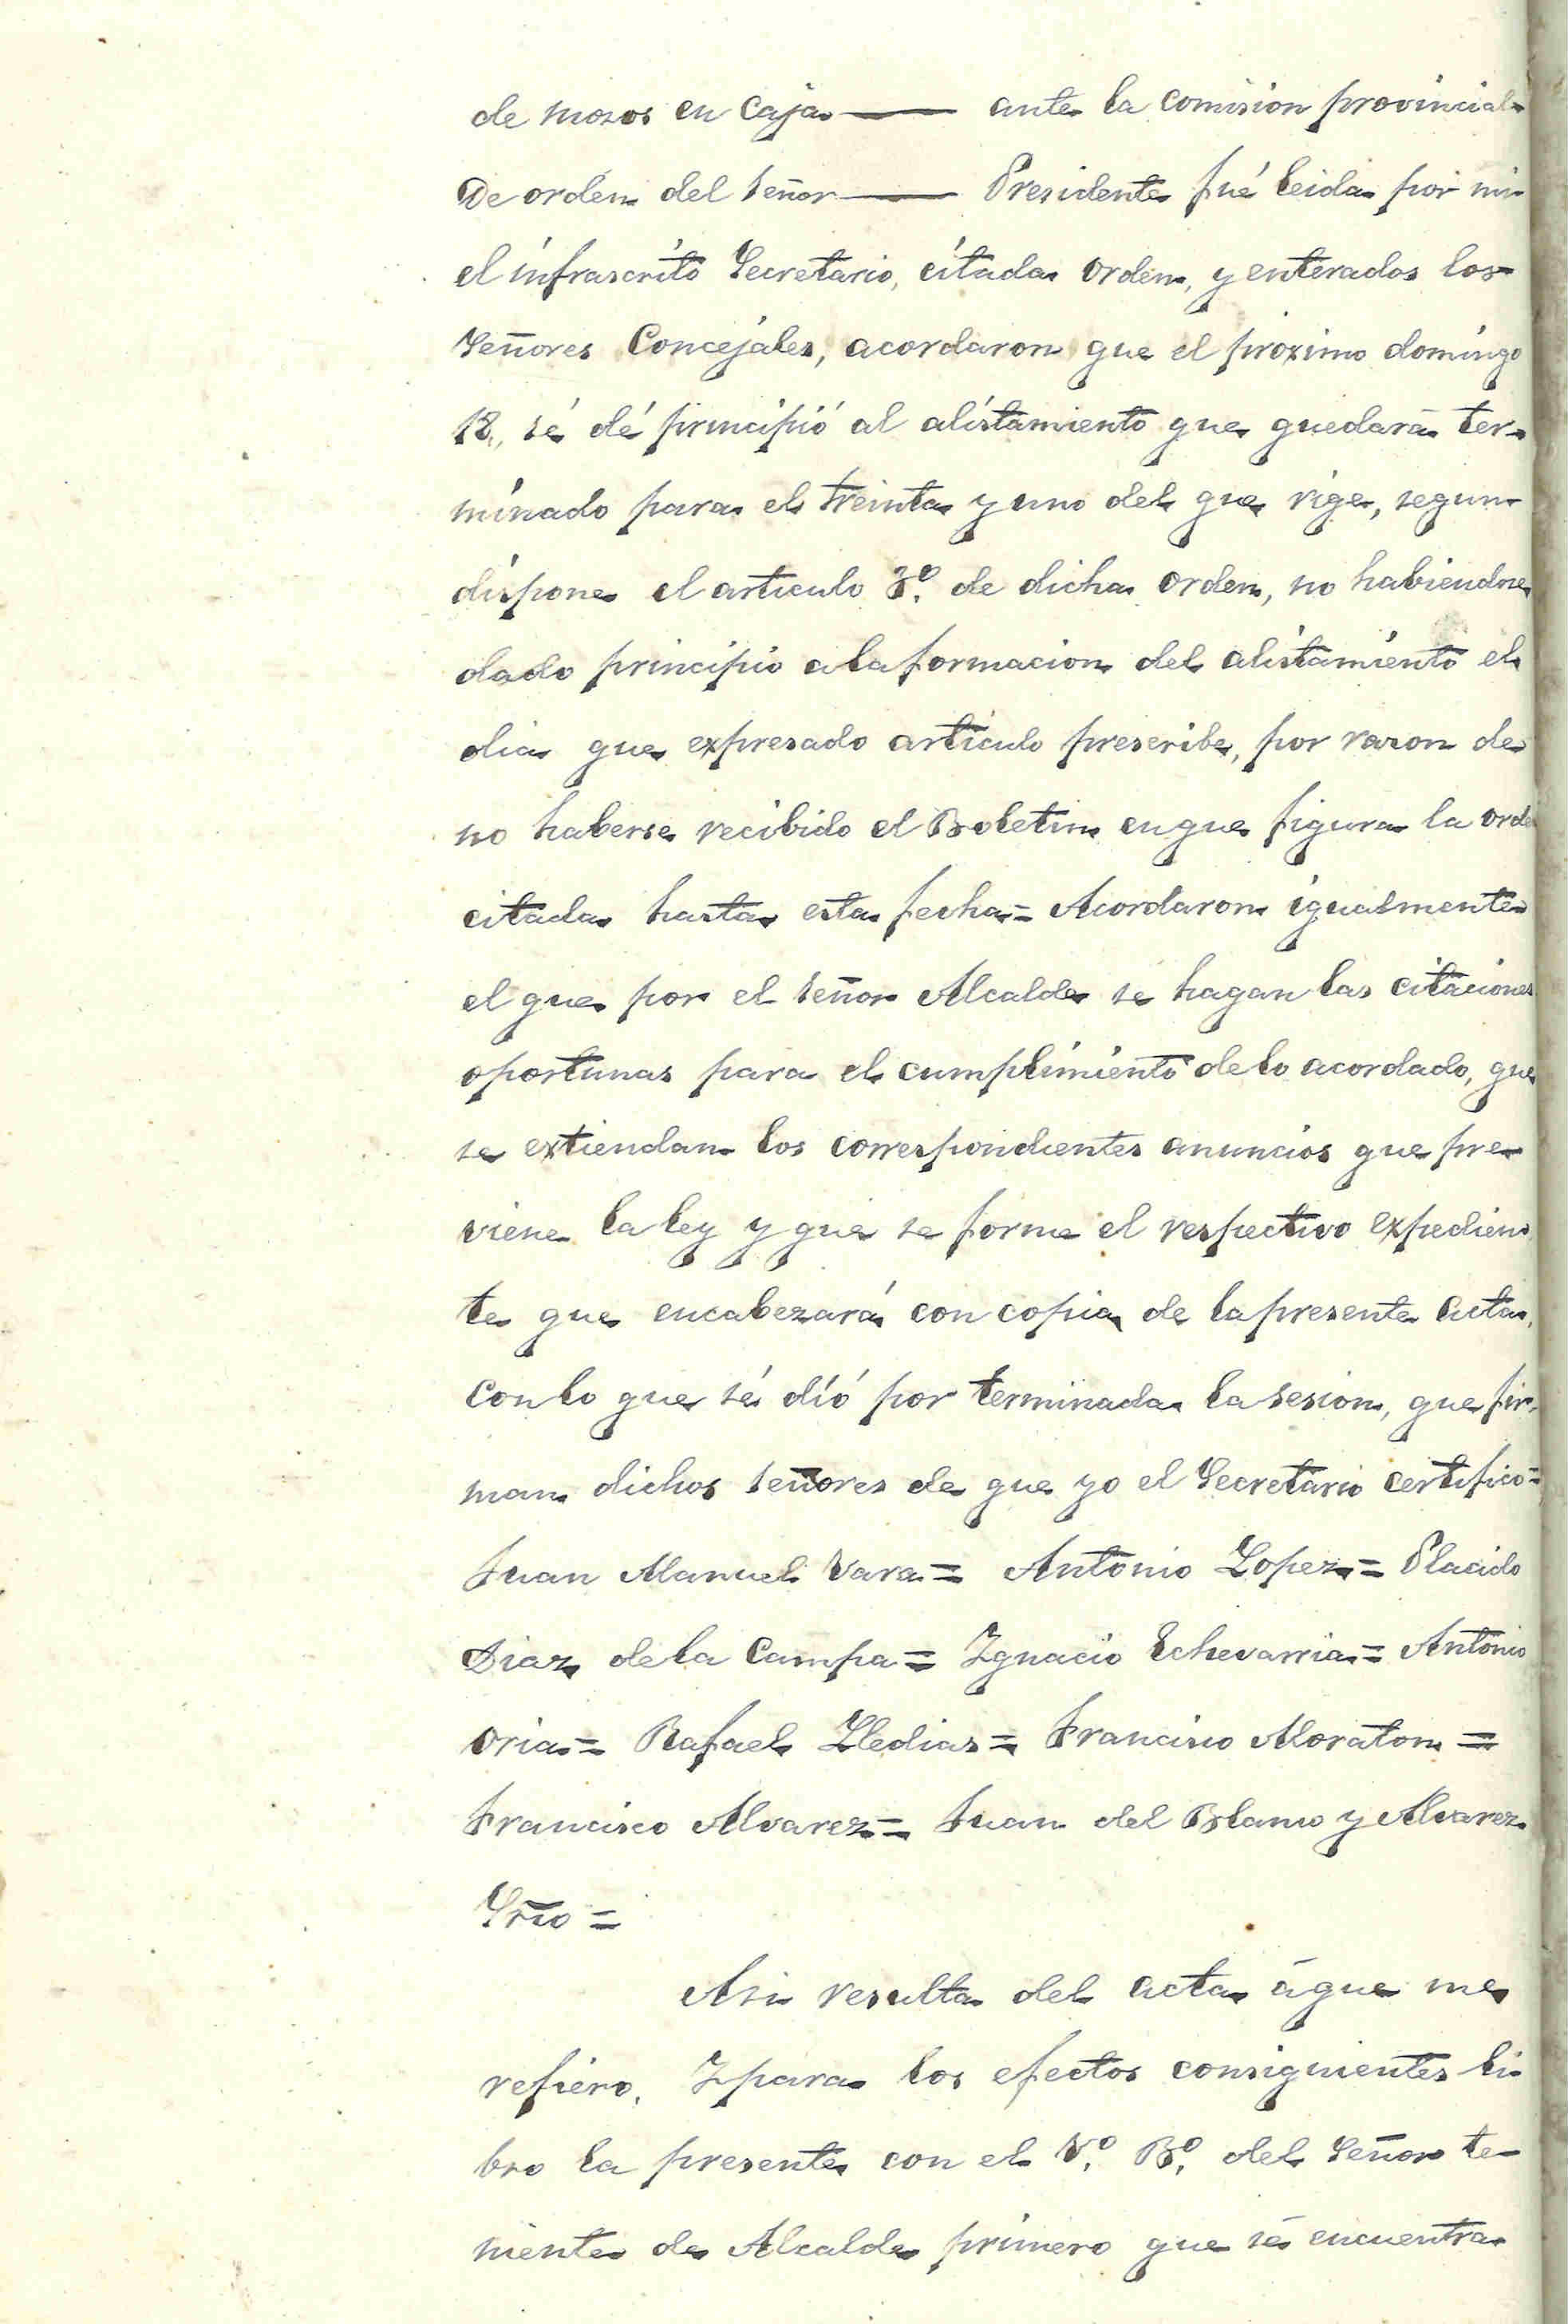 de mozos en Caja —— ante la Comision provincial
De orden del Señor —— Presidente fué leida por mi
el infrascrito Secretario, citada orden, y enterados los
Señores Concejales, acordaron que el próximo domingo
12, sé dé principió al alistamiento que quedara ter-
minado para el treinta y uno del que rige, segun
dispone el articulo 3.º de dicha orden, no habiendose
dado principio a la formacion del alistamiento el
dia que expresado artículo prescribe, por razon de
no haberse recibido el Boletin en que figura la orde
citada hasta esta fecha = Acordaron igualmente
el que por el Señor Alcalde se hagan las citaciones
oportunas para el cumplimiento de lo acordado, que
se extiendan los correspondientes anuncios que pre-
viene la ley y que se forme el respectivo expedien-
te que encabezará con copia de la presente acta,
con lo que sé dió por terminada la sesion, que fir-
man dichos Señores de que yo el Secretario certifico =
Juan Manuel Vara = Antonio Lopez = Placido
Diaz de la Campa = Ygnacio Echevarria = Antonio
Oria = Rafael Lledias = Francisco Moraton =
Francisco Alvarez = Juan del Blanco y Alvarez
Srio =
Asi resulta del acta á que me
refiero. Y para los efectos consiguientes li-
bro la presente con el V.º B.º del Señor te-
niente de Alcalde primero que sé encuentra